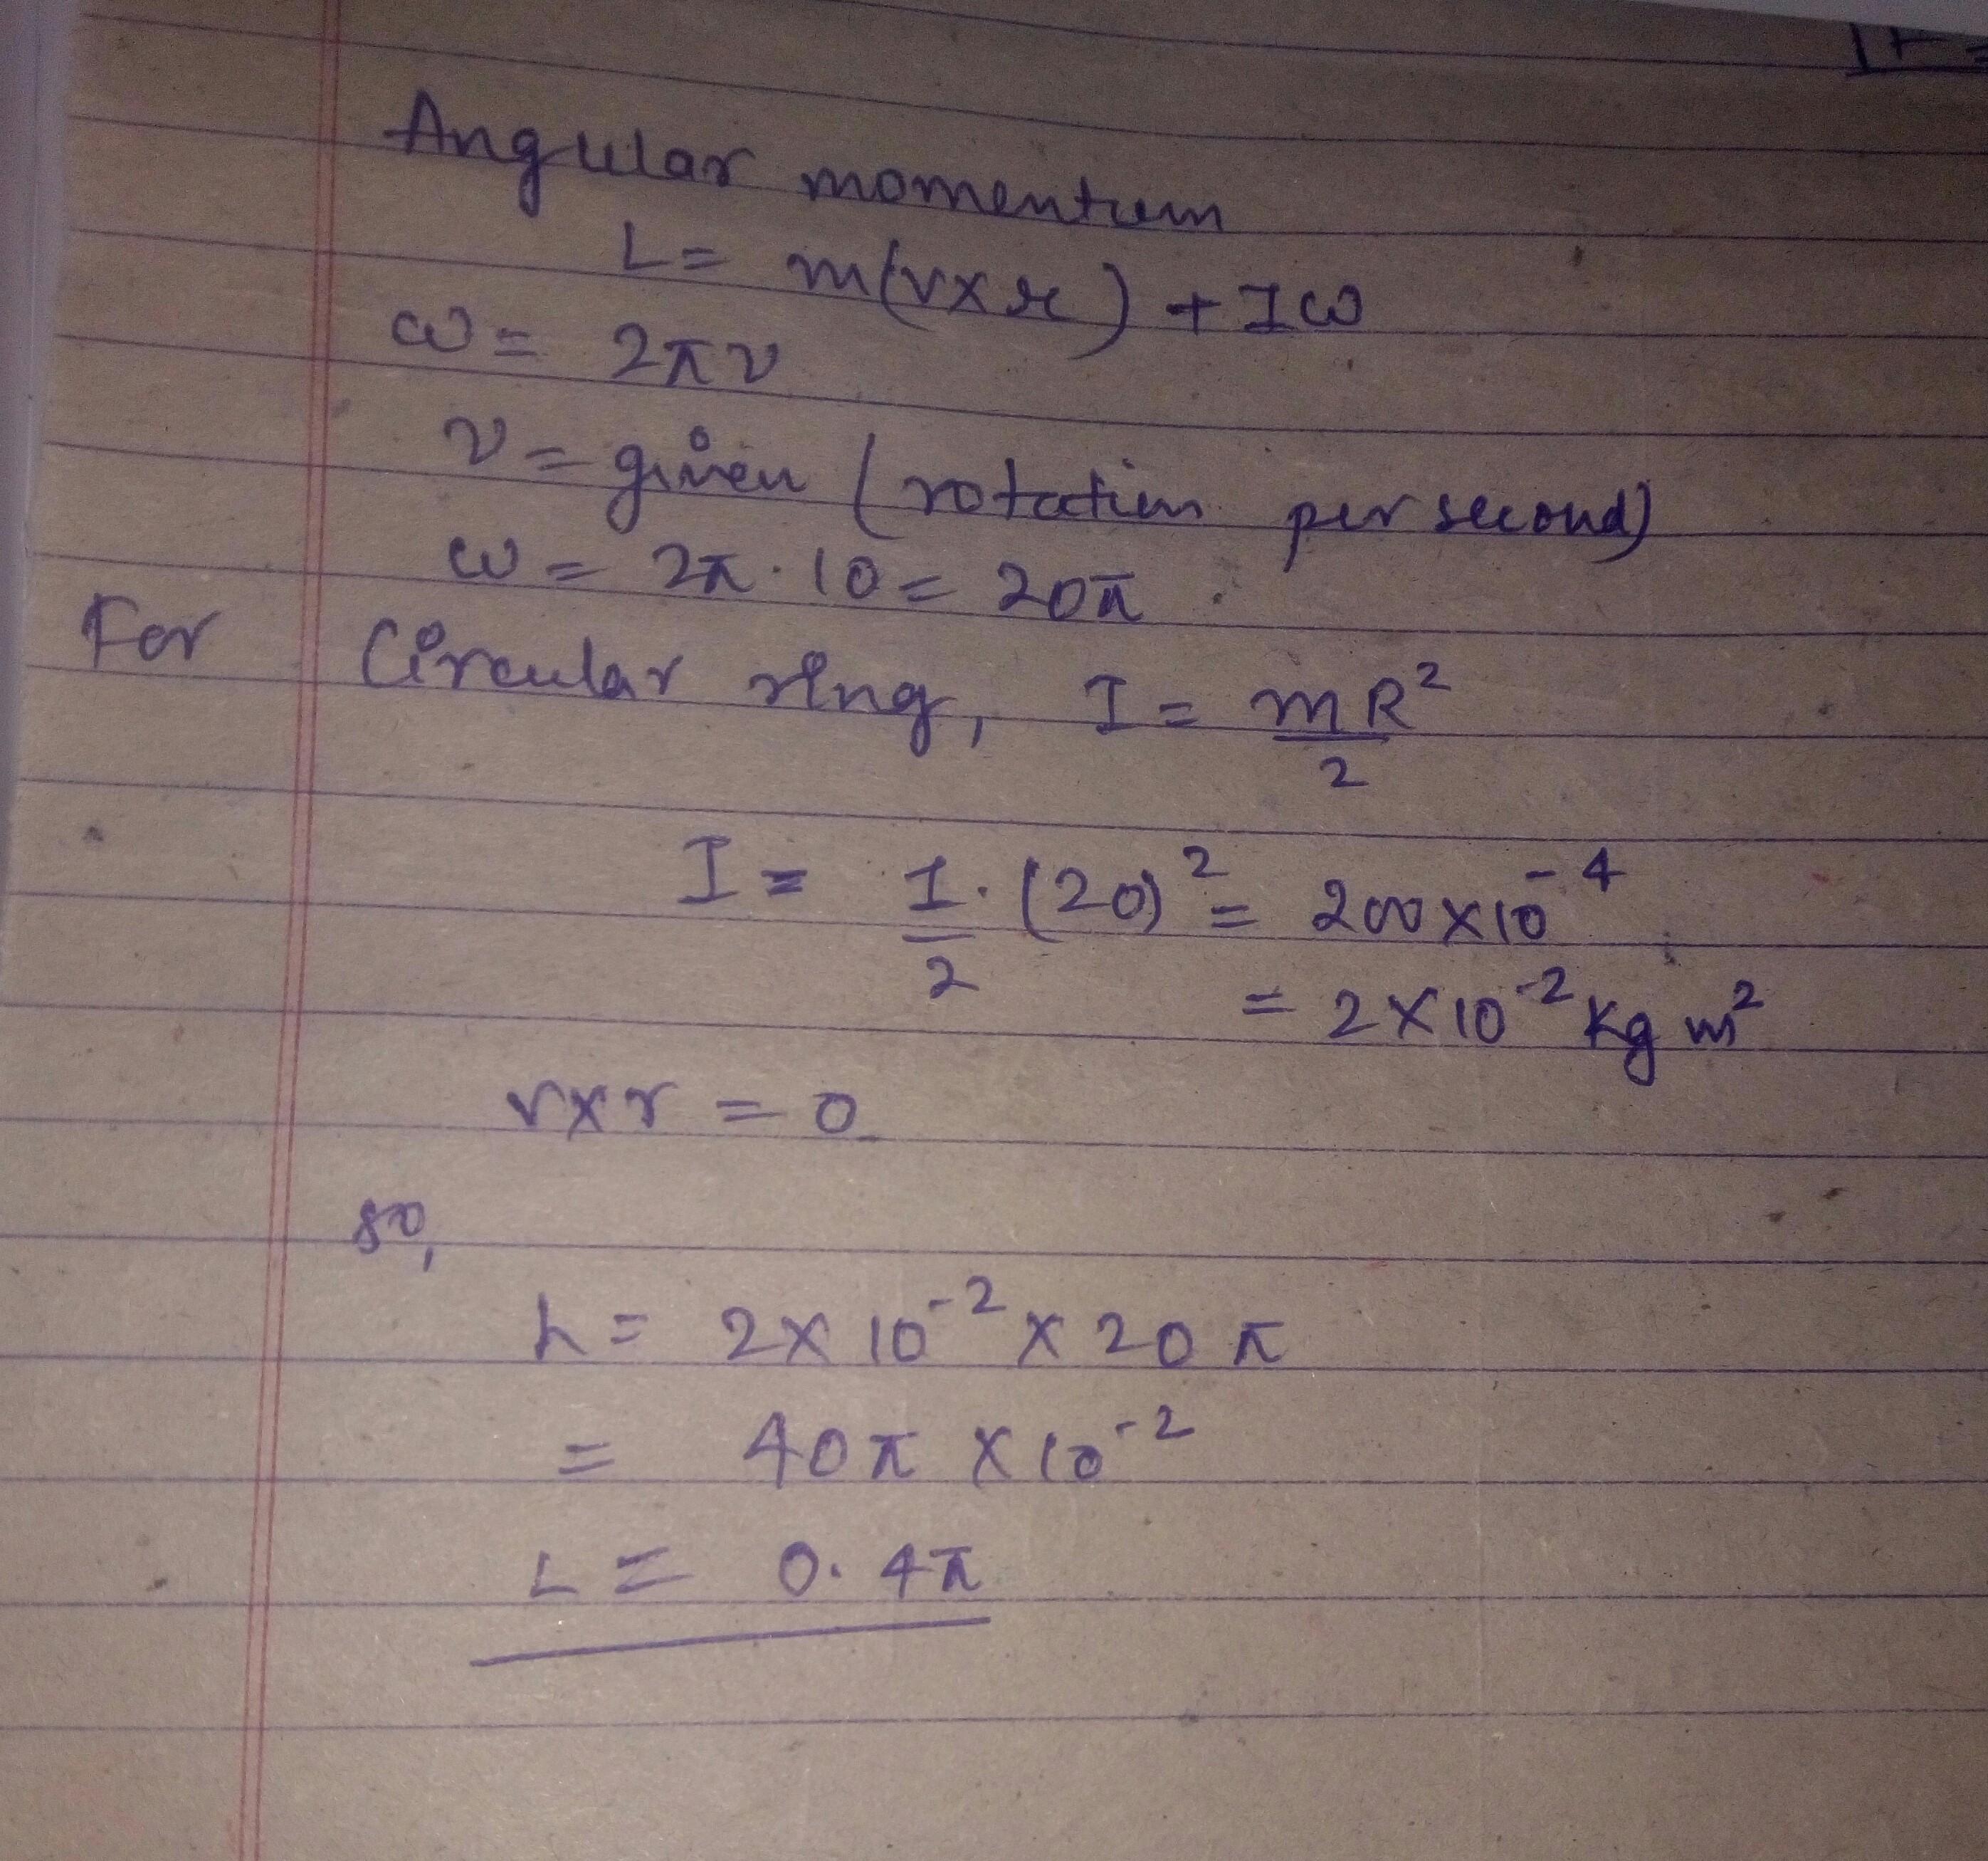 Angular momentum
L = m(v×r) + Iω
ω = 2πν
ν = given (rotation per second)
ω = 2π·10 = 20π
For Circular ring, I = mR²/2
I = 1/2·(20)² = 200×10⁻⁴
= 2×10⁻² kg m²
v×r = 0
so,
L = 2×10⁻²×20π
= 40π×10⁻²
L = 0.4π